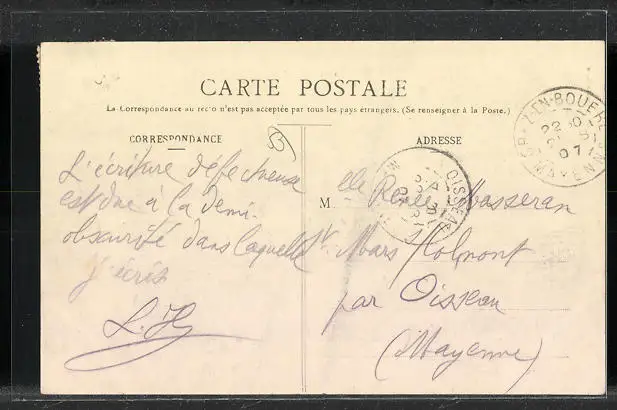 CARTE POSTALE
La Correspondance au recto n'est pas acceptée par tous les pays étrangers. (Se renseigner à la Poste.)
CORRESPONDANCE
L'écriture défectueuse
est due à la demi-
obscurité dans laquelle
j'écris
L. Hy
ADRESSE
M elle Renée Masseran
St Mars s/ Colmont
par Oisseau
(Mayenne)
OISSEAU
Z-EN-BOUERE
22
07
MAYENNE